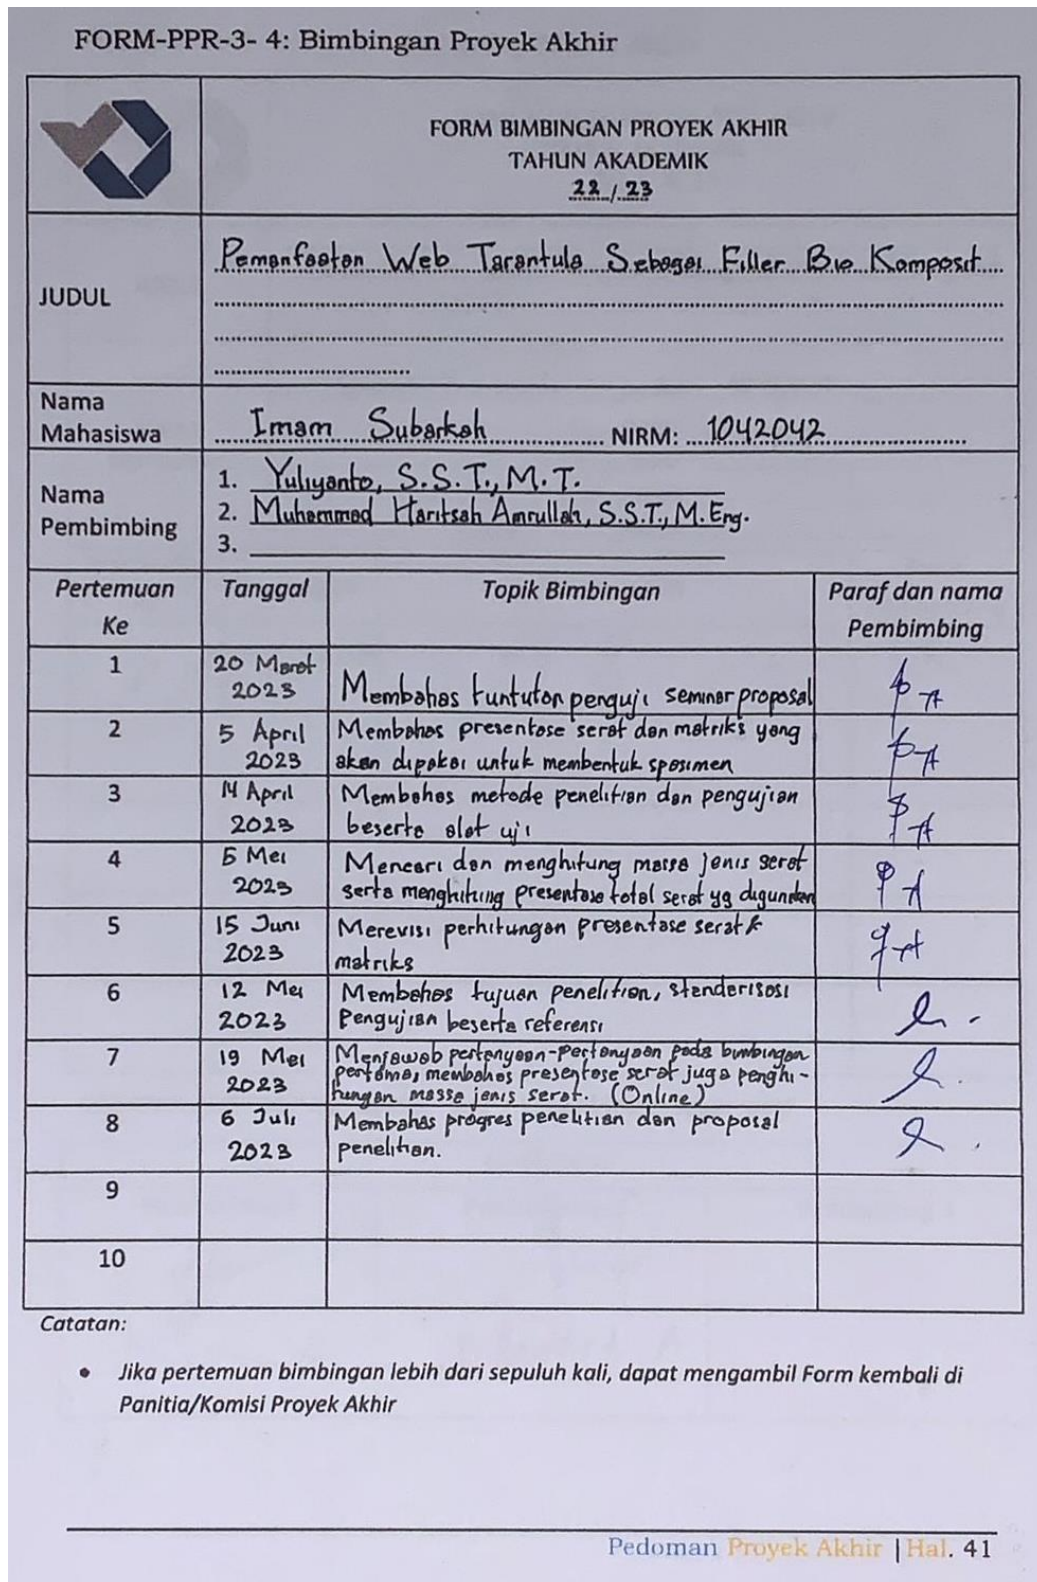 FORM-PPR-3- 4: Bimbingan Proyek Akhir
FORM BIMBINGAN PROYEK AKHIR
TAHUN AKADEMIK
22 / 23
JUDUL
Pemanfaatan Web Tarantula Sebagai Filler Bio Komposit
Nama
Mahasiswa
Imam Subarkah NIRM: 1042042
Nama
Pembimbing
1. Yuliyanto, S.S.T., M.T.
2. Muhammad Haritsah Amrullah, S.S.T., M.Eng.
3.
Pertemuan
Ke
Tanggal
Topik Bimbingan
Paraf dan nama
Pembimbing
1
20 Maret
2023
Membahas tuntutan penguji seminar proposal
2
5 April
2023
Membahas presentase serat dan matriks yang
akan dipakai untuk membentuk spesimen
3
14 April
2023
Membahas metode penelitian dan pengujian
beserta alat uji
4
5 Mei
2023
Mencari dan menghitung massa jenis serat
serta menghitung presentase total serat yg digunakan
5
15 Juni
2023
Merevisi perhitungan presentase serat &
matriks
6
12 Mei
2023
Membahas tujuan penelitian, standarisasi
Pengujian beserta referensi
7
19 Mei
2023
Menjawab pertanyaan-pertanyaan pada bimbingan
pertama, membahas presentase serat juga penghi-
tungan massa jenis serat. (Online)
8
6 Juli
2023
Membahas progres penelitian dan proposal
penelitian.
9
10
Catatan:
• Jika pertemuan bimbingan lebih dari sepuluh kali, dapat mengambil Form kembali di
Panitia/Komisi Proyek Akhir
Pedoman Proyek Akhir | Hal. 41